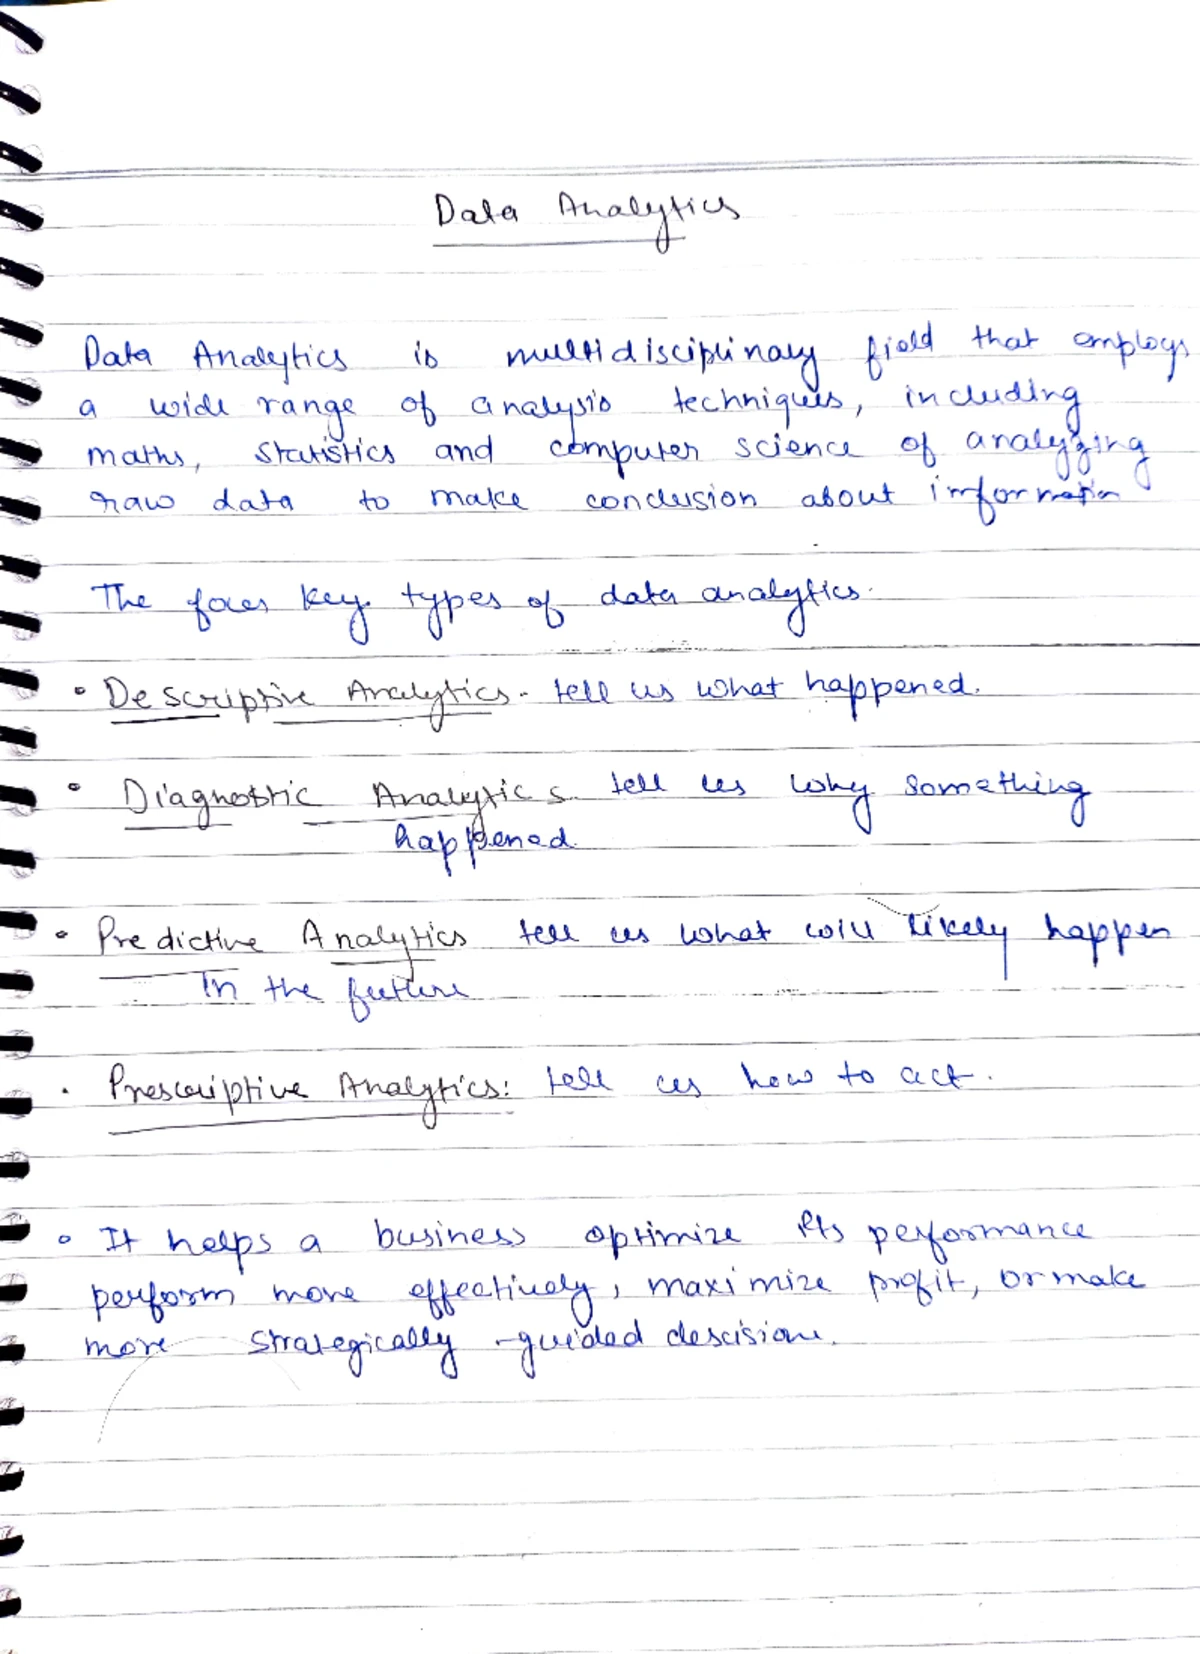 Data Analytics
Data Analytics is multidisciplinary field that employs
a wide range of analysis techniques, including
maths, statistics and computer science of analyzing
raw data to make conclusion about information
The four key types of data analytics.
• Descriptive Analytics - tell us what happened.
• Diagnostic Analytics. tell us why something
happened.
• Predictive Analytics tell us what will likely happen
In the future
• Prescriptive Analytics: tell us how to act.
• It helps a business optimize its performance
perform more effectively, maximize profit, or make
more strategically -guided descision.